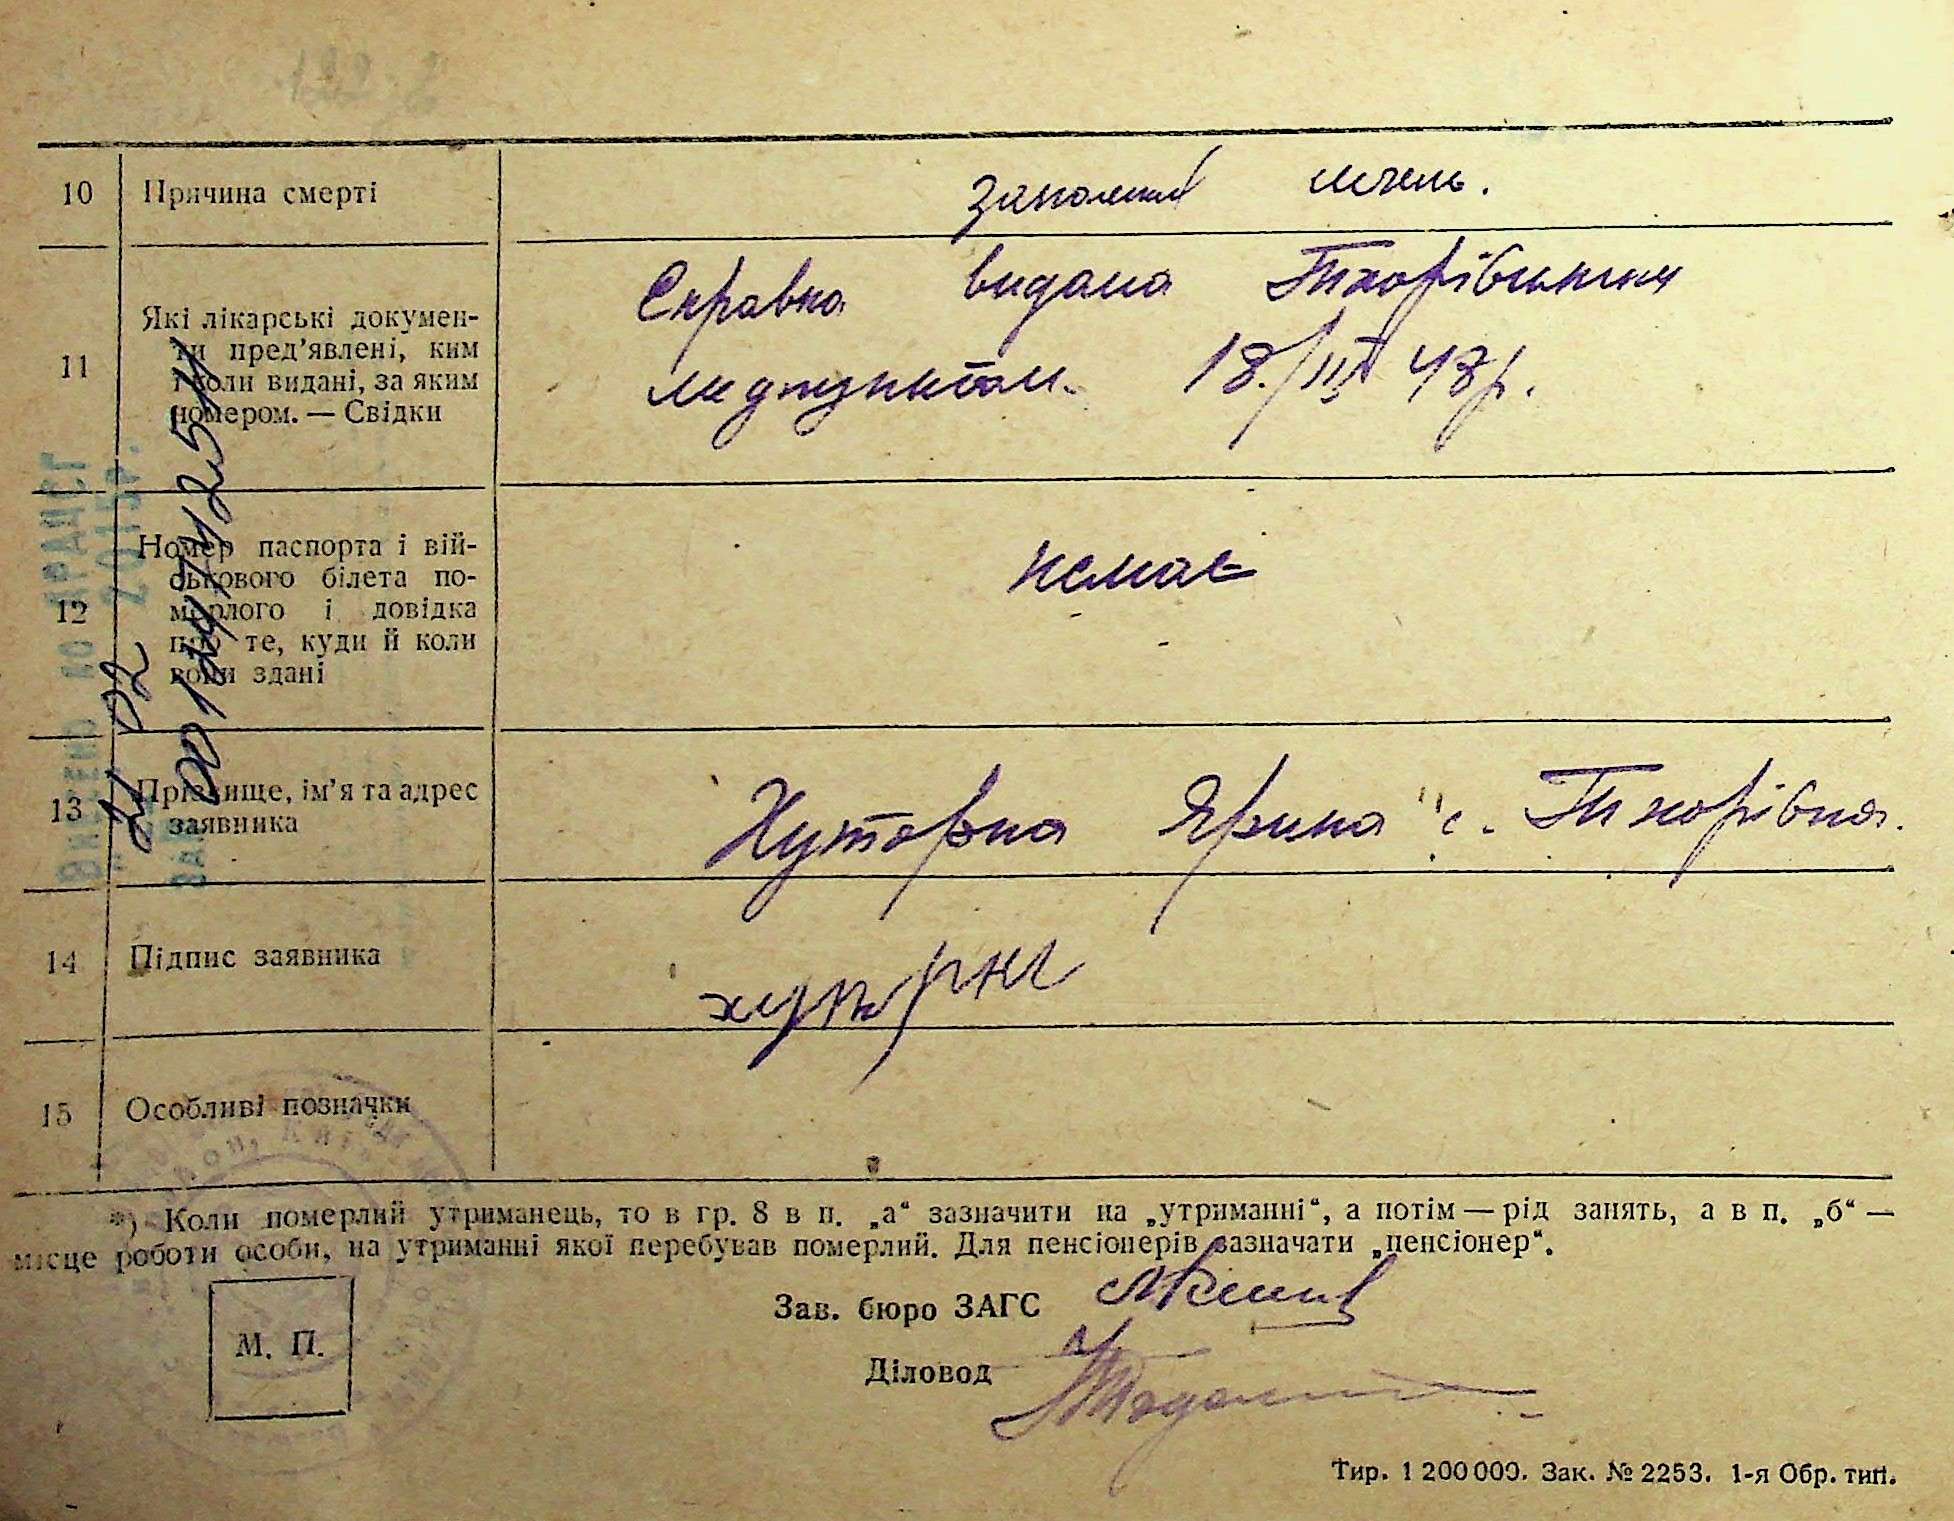 10 Причина смерті
11 Які лікарські докумен-
ти пред'явлені, ким
і коли видані, за яким
номером. — Свідки
Справка видана Тхорівським
медпунктом. 18./III 48р.
12 Номер паспорта і вій-
ськового білета по-
мерлого і довідка
про те, куди й коли
вони здані
немає
13 Прізвище, ім'я та адрес
заявника
Хуторна Ярина с. Тхорівка.
14 Підпис заявника
хуторна
15 Особливі позначки
*) Коли померлий утриманець, то в гр. 8 в п. „а“ зазначити на „утриманні“, а потім — рід занять, а в п. „б“ —
місце роботи особи, на утриманні якої перебував померлий. Для пенсіонерів зазначати „пенсіонер“.
М. П.
Зав. бюро ЗАГС
Діловод
Тир. 1 200 000. Зак. № 2253. 1-я Обр. тип.